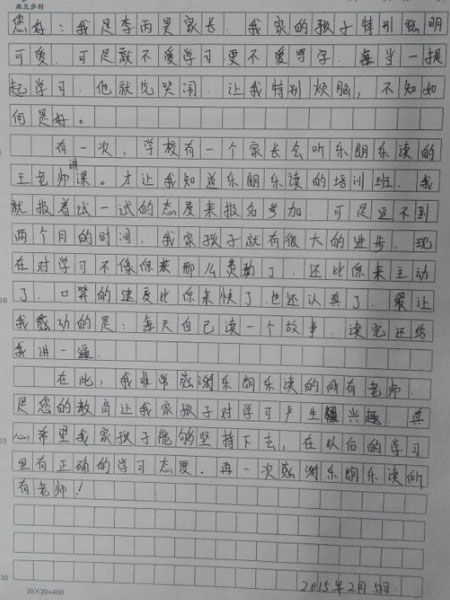 您好：我是李丙昊家长．我家的孩子特别聪明
可爱．可是就不爱学习更不爱写字．每当一提
起学习．他就先哭闹．让我特别烦脑，不知如
何是好。
有一次，学校有一个家长会听乐朗乐读的
王老师讲课。才让我知道乐朗乐读的培训班．我
就报着试一试的态度来报名参加．可是还不到
两个月的时间，我家孩子就有很大的进步．现
在对学习不像原来那么费劲了．还比原来主动
了．口算的速度比原来快了也还认真了．最让
我感动的是：每天自己读一个故事．读完还给
我讲一遍．
在此，我非常感谢乐朗乐读的所有老师．
是您的教育让我家孩子对学习产生兴趣．真
心希望我家孩子能够坚持下去，在以后的学习
里有正确的学习态度．再一次感谢乐朗乐读所
有老师！
2015年2月5日
5
10
15
20
20×20=400